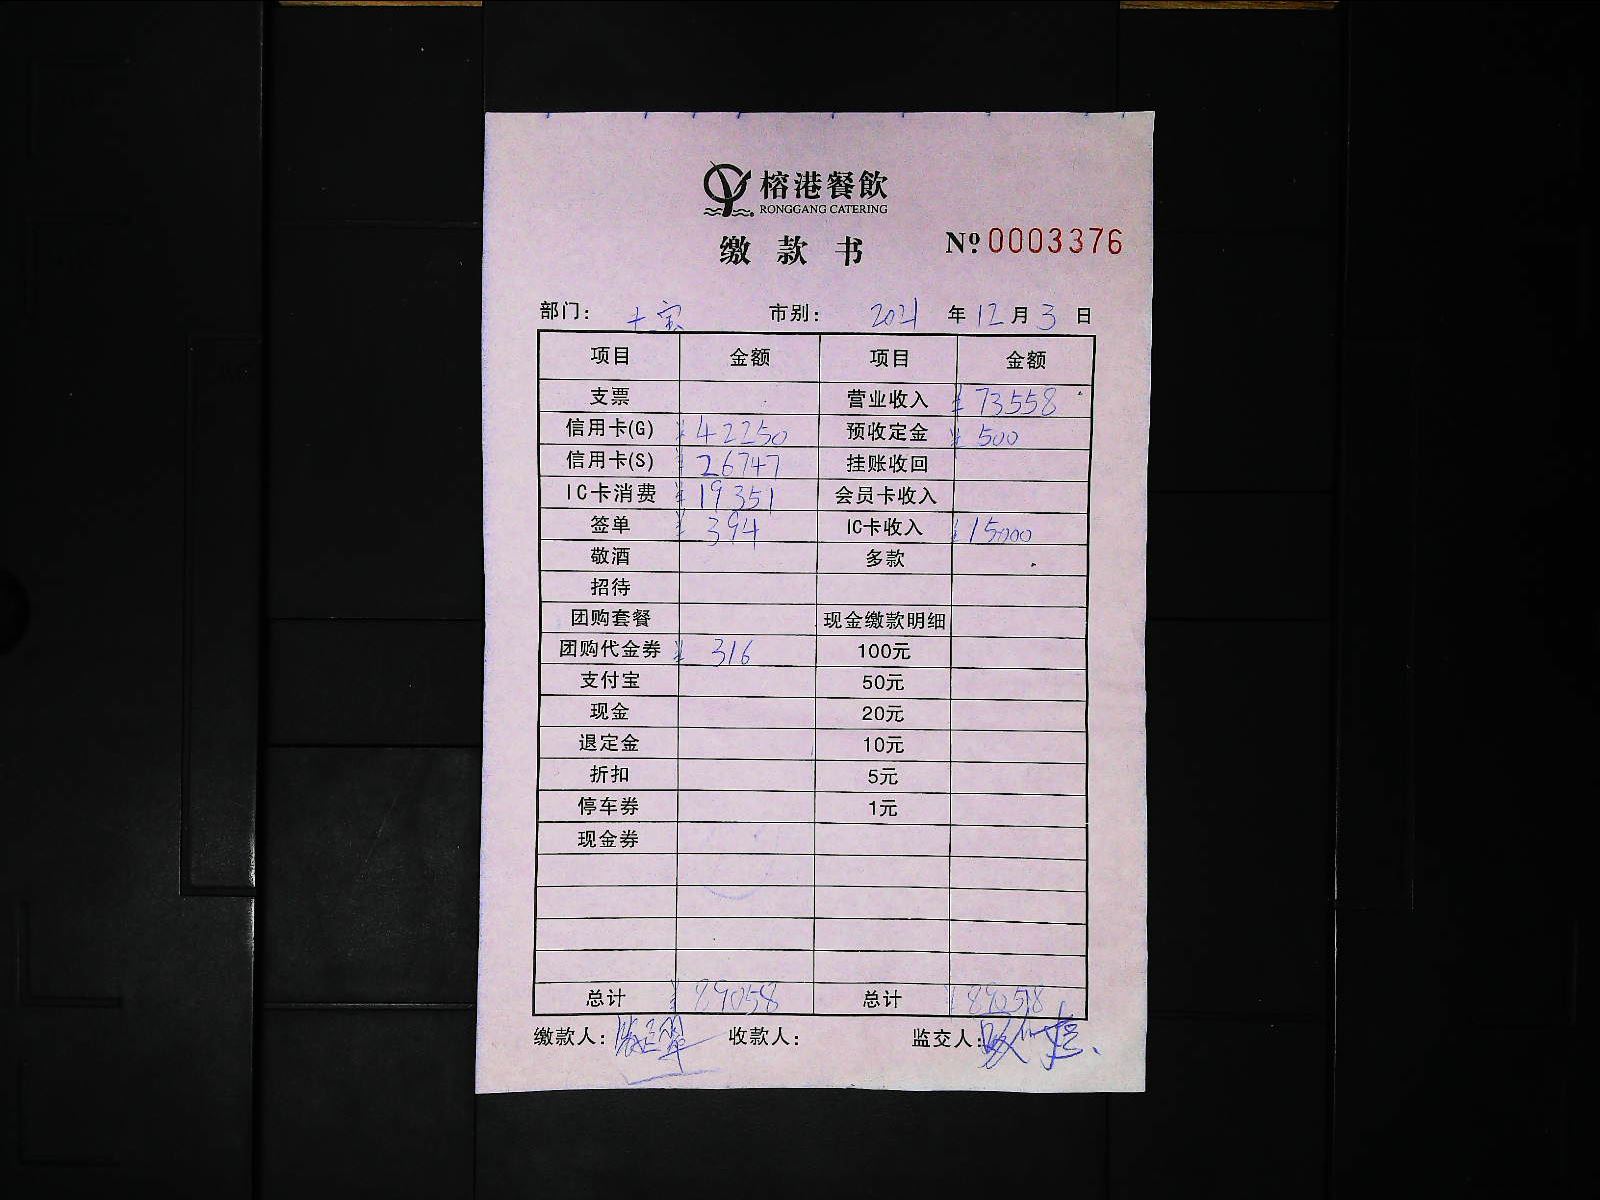 榕港餐飲
RONGGANG CATERING
缴款书 № 0003376
部门: 七宝 市别: 2021 年 12 月 3 日
项目 金额 项目 金额
支票 营业收入 ¥ 73558
信用卡(G) ¥ 42250 预收定金 ¥ 500
信用卡(S) ¥ 26747 挂账收回
IC卡消费 ¥ 19351 会员卡收入
签单 ¥ 394 IC卡收入 ¥ 15000
敬酒 多款
招待
团购套餐 现金缴款明细
团购代金券 ¥ 316 100元
支付宝 50元
现金 20元
退定金 10元
折扣 5元
停车券 1元
现金券
总计 ¥ 89058 总计 ¥ 89058
缴款人: 收款人: 监交人: